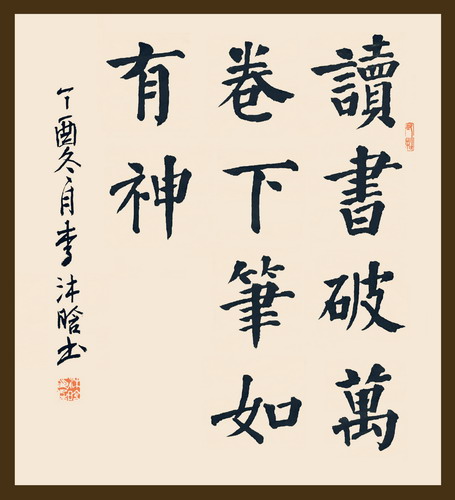 讀書破萬
卷下筆如
有神
丁酉冬月李沐晗书